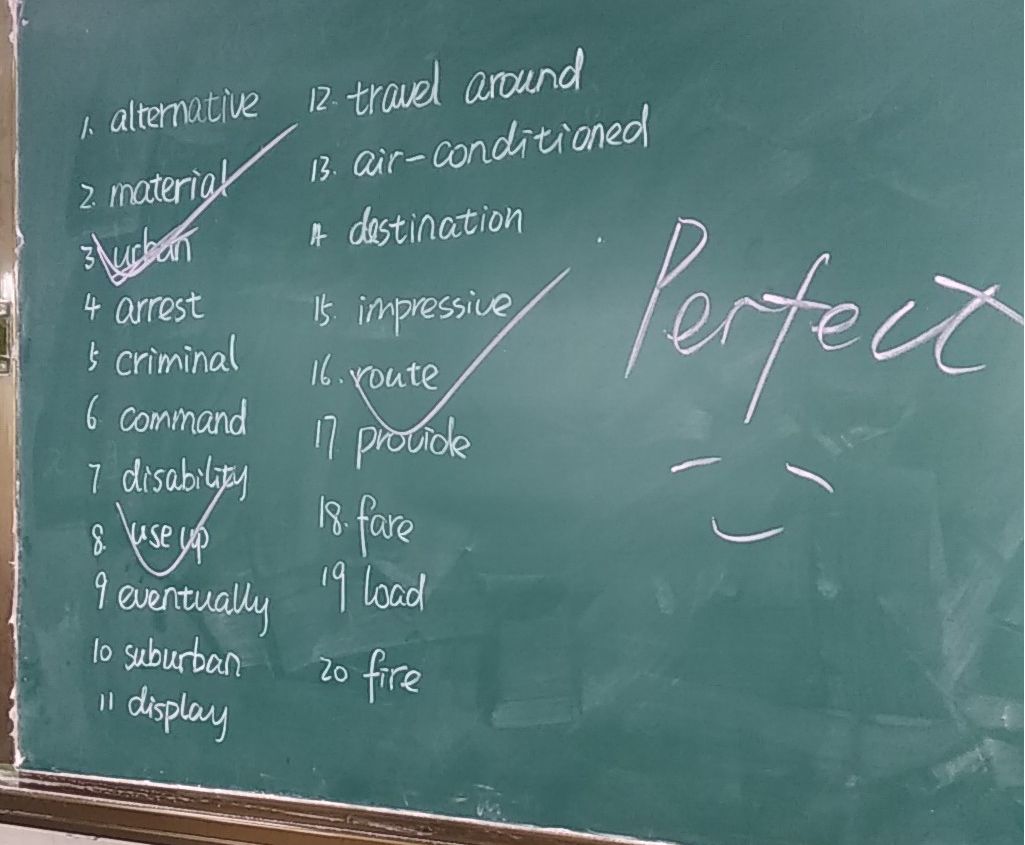 1. alternative
2. material
3 urban
4 arrest
5 criminal
6 command
7 disability
8. use up
9 eventually
10 suburban
11 display
12. travel around
13. air-conditioned
14 destination
15. impressive
16. route
17. provide
18. fare
19 load
20 fire
Perfect